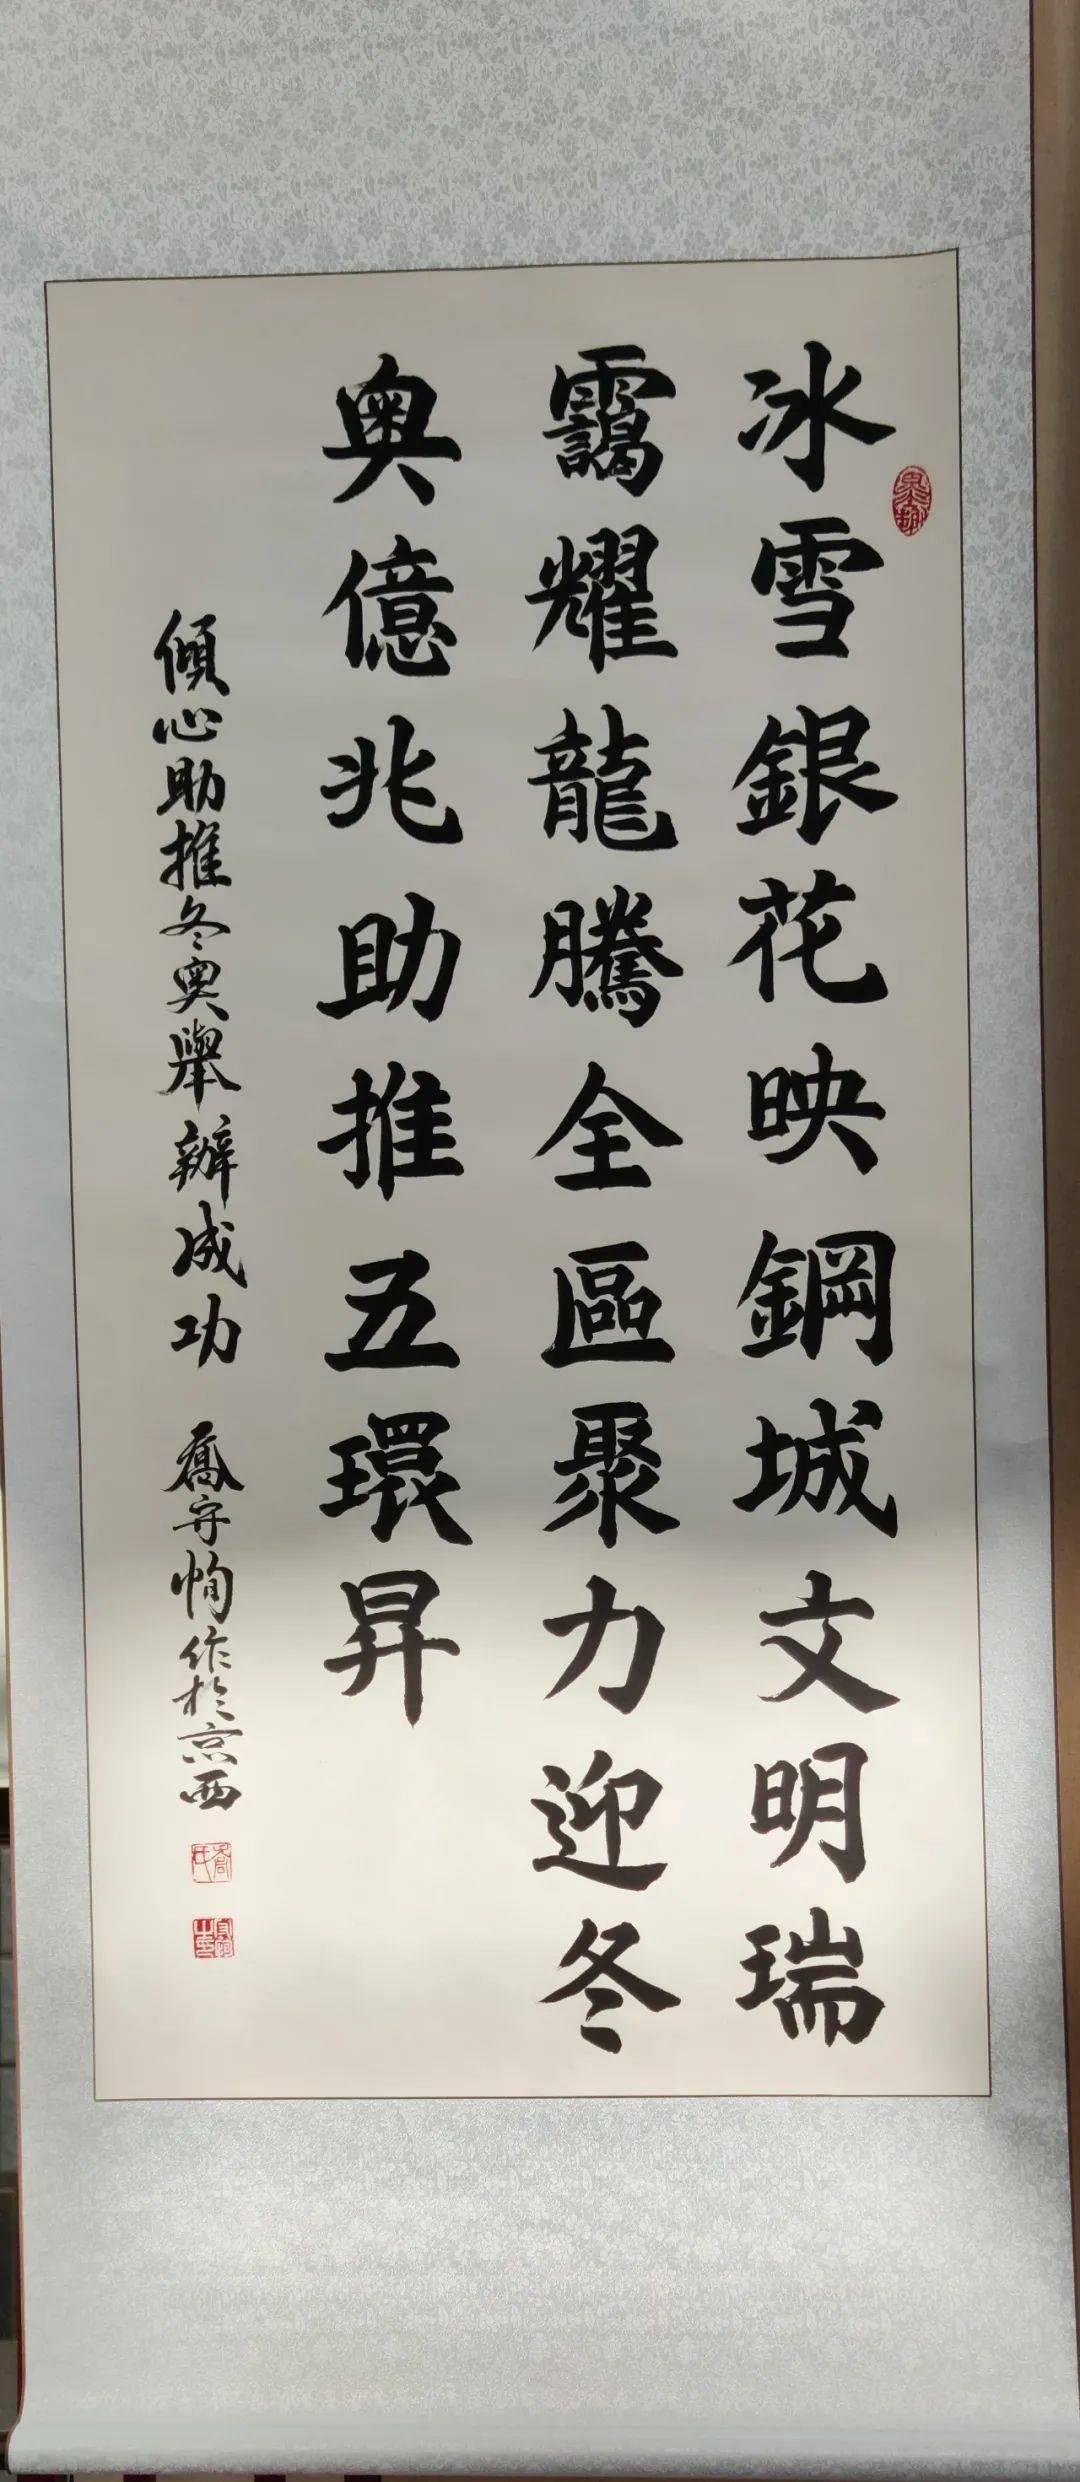 冰雪銀花映鋼城文明瑞
靄耀龍騰全區聚力迎冬
奧億兆助推五環昇
傾心助推冬奧舉辦成功 喬守恂作於京西